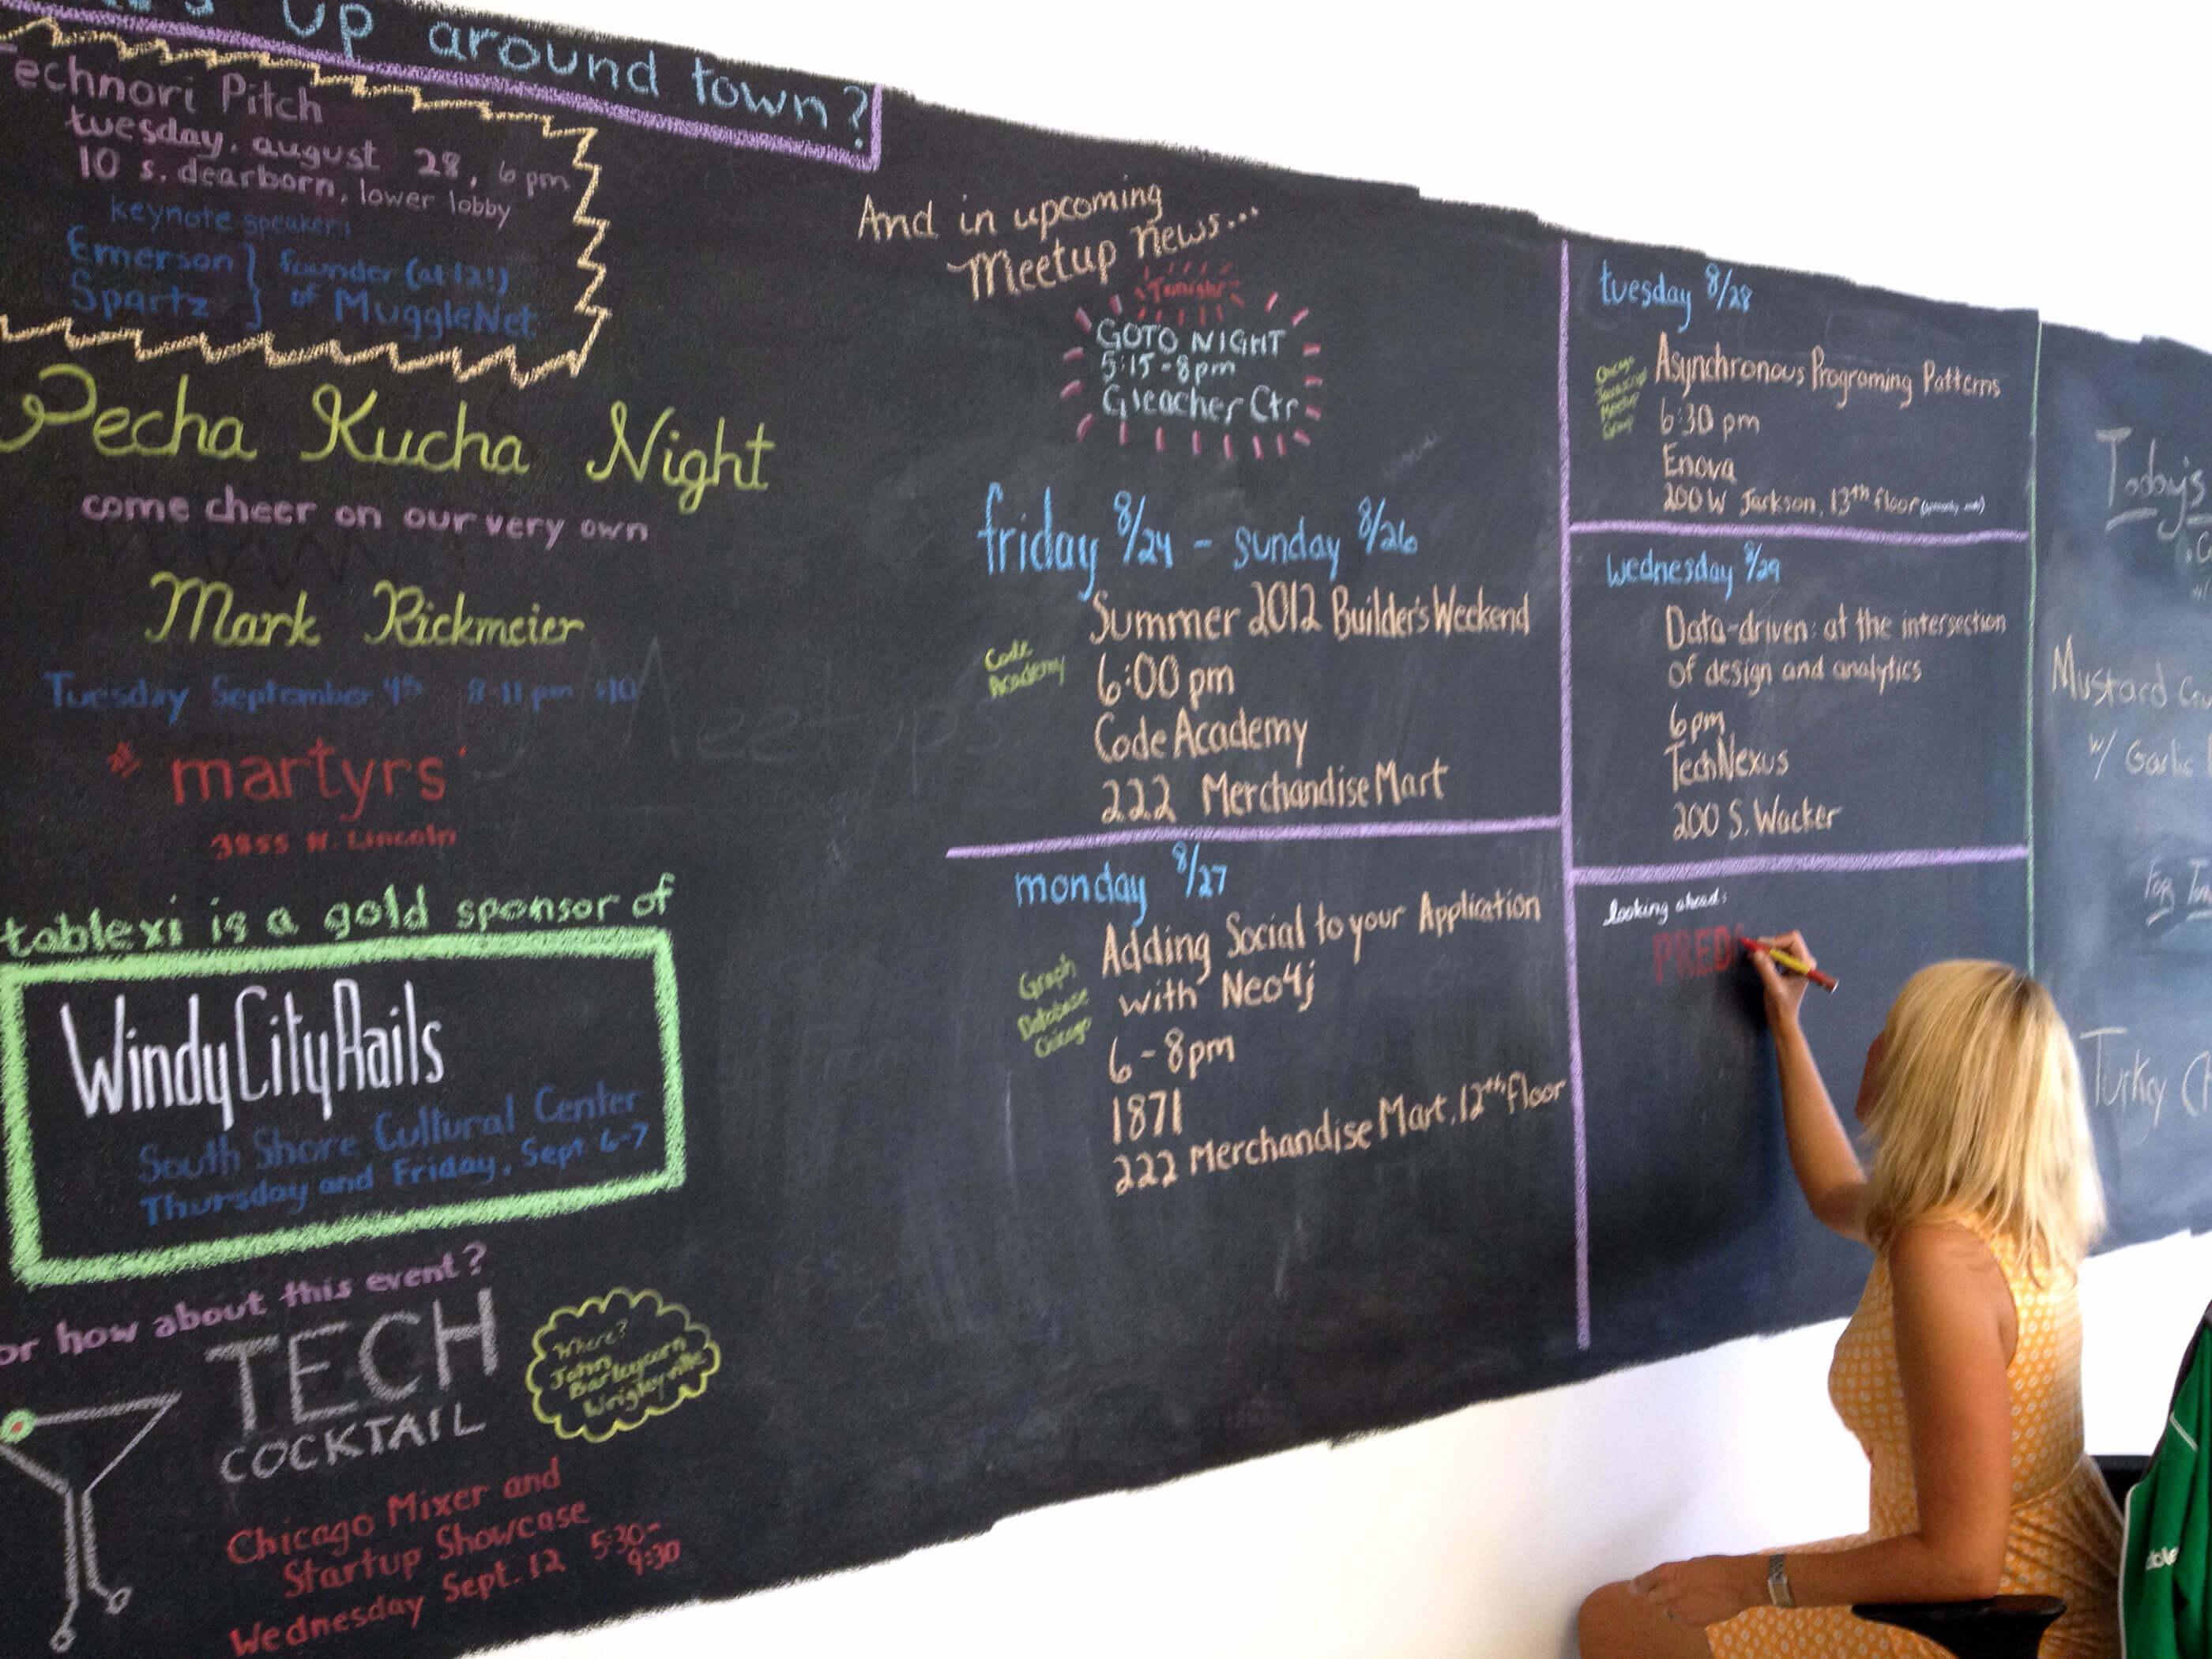 up around town?
echnori Pitch
tuesday, august 28, 6 pm
10 s. dearborn, lower lobby
keynote speaker:
Emerson } founder (at 12!)
Spartz } of MuggleNet
Pecha Kucha Night
come cheer on our very own
Mark Rickmeier
Tuesday September 4th 8-11 pm $10
martyrs'
3855 N. Lincoln
tablexi is a gold sponsor of
WindyCityRails
South Shore Cultural Center
Thursday and Friday, Sept 6-7
or how about this event?
TECH
COCKTAIL
Where?
John
Barleycorn
Wrigleyville
Chicago Mixer and
Startup Showcase
Wednesday Sept. 12 5:30-
9:30
Meetups
And in upcoming
Meetup news...
Tonight
GOTO NIGHT
5:15-8pm
Gleacher Ctr
friday 8/24 - sunday 8/26
Code
Academy
Summer 2012 Builder's Weekend
6:00 pm
Code Academy
222 Merchandise Mart
monday 8/27
Graph
Database
Chicago
Adding Social to your Application
with Neo4j
6-8pm
1871
222 Merchandise Mart, 12th floor
tuesday 8/28
Chicago
Javascript
Meetup
Group
Asynchronous Programing Patterns
6:30 pm
Enova
200 W Jackson, 13th floor
wednesday 8/29
Data-driven: at the intersection
of design and analytics
6pm
TechNexus
200 S. Wacker
looking ahead:
PRED
Today's
Mustard
w/ Garlic
For
Turkey